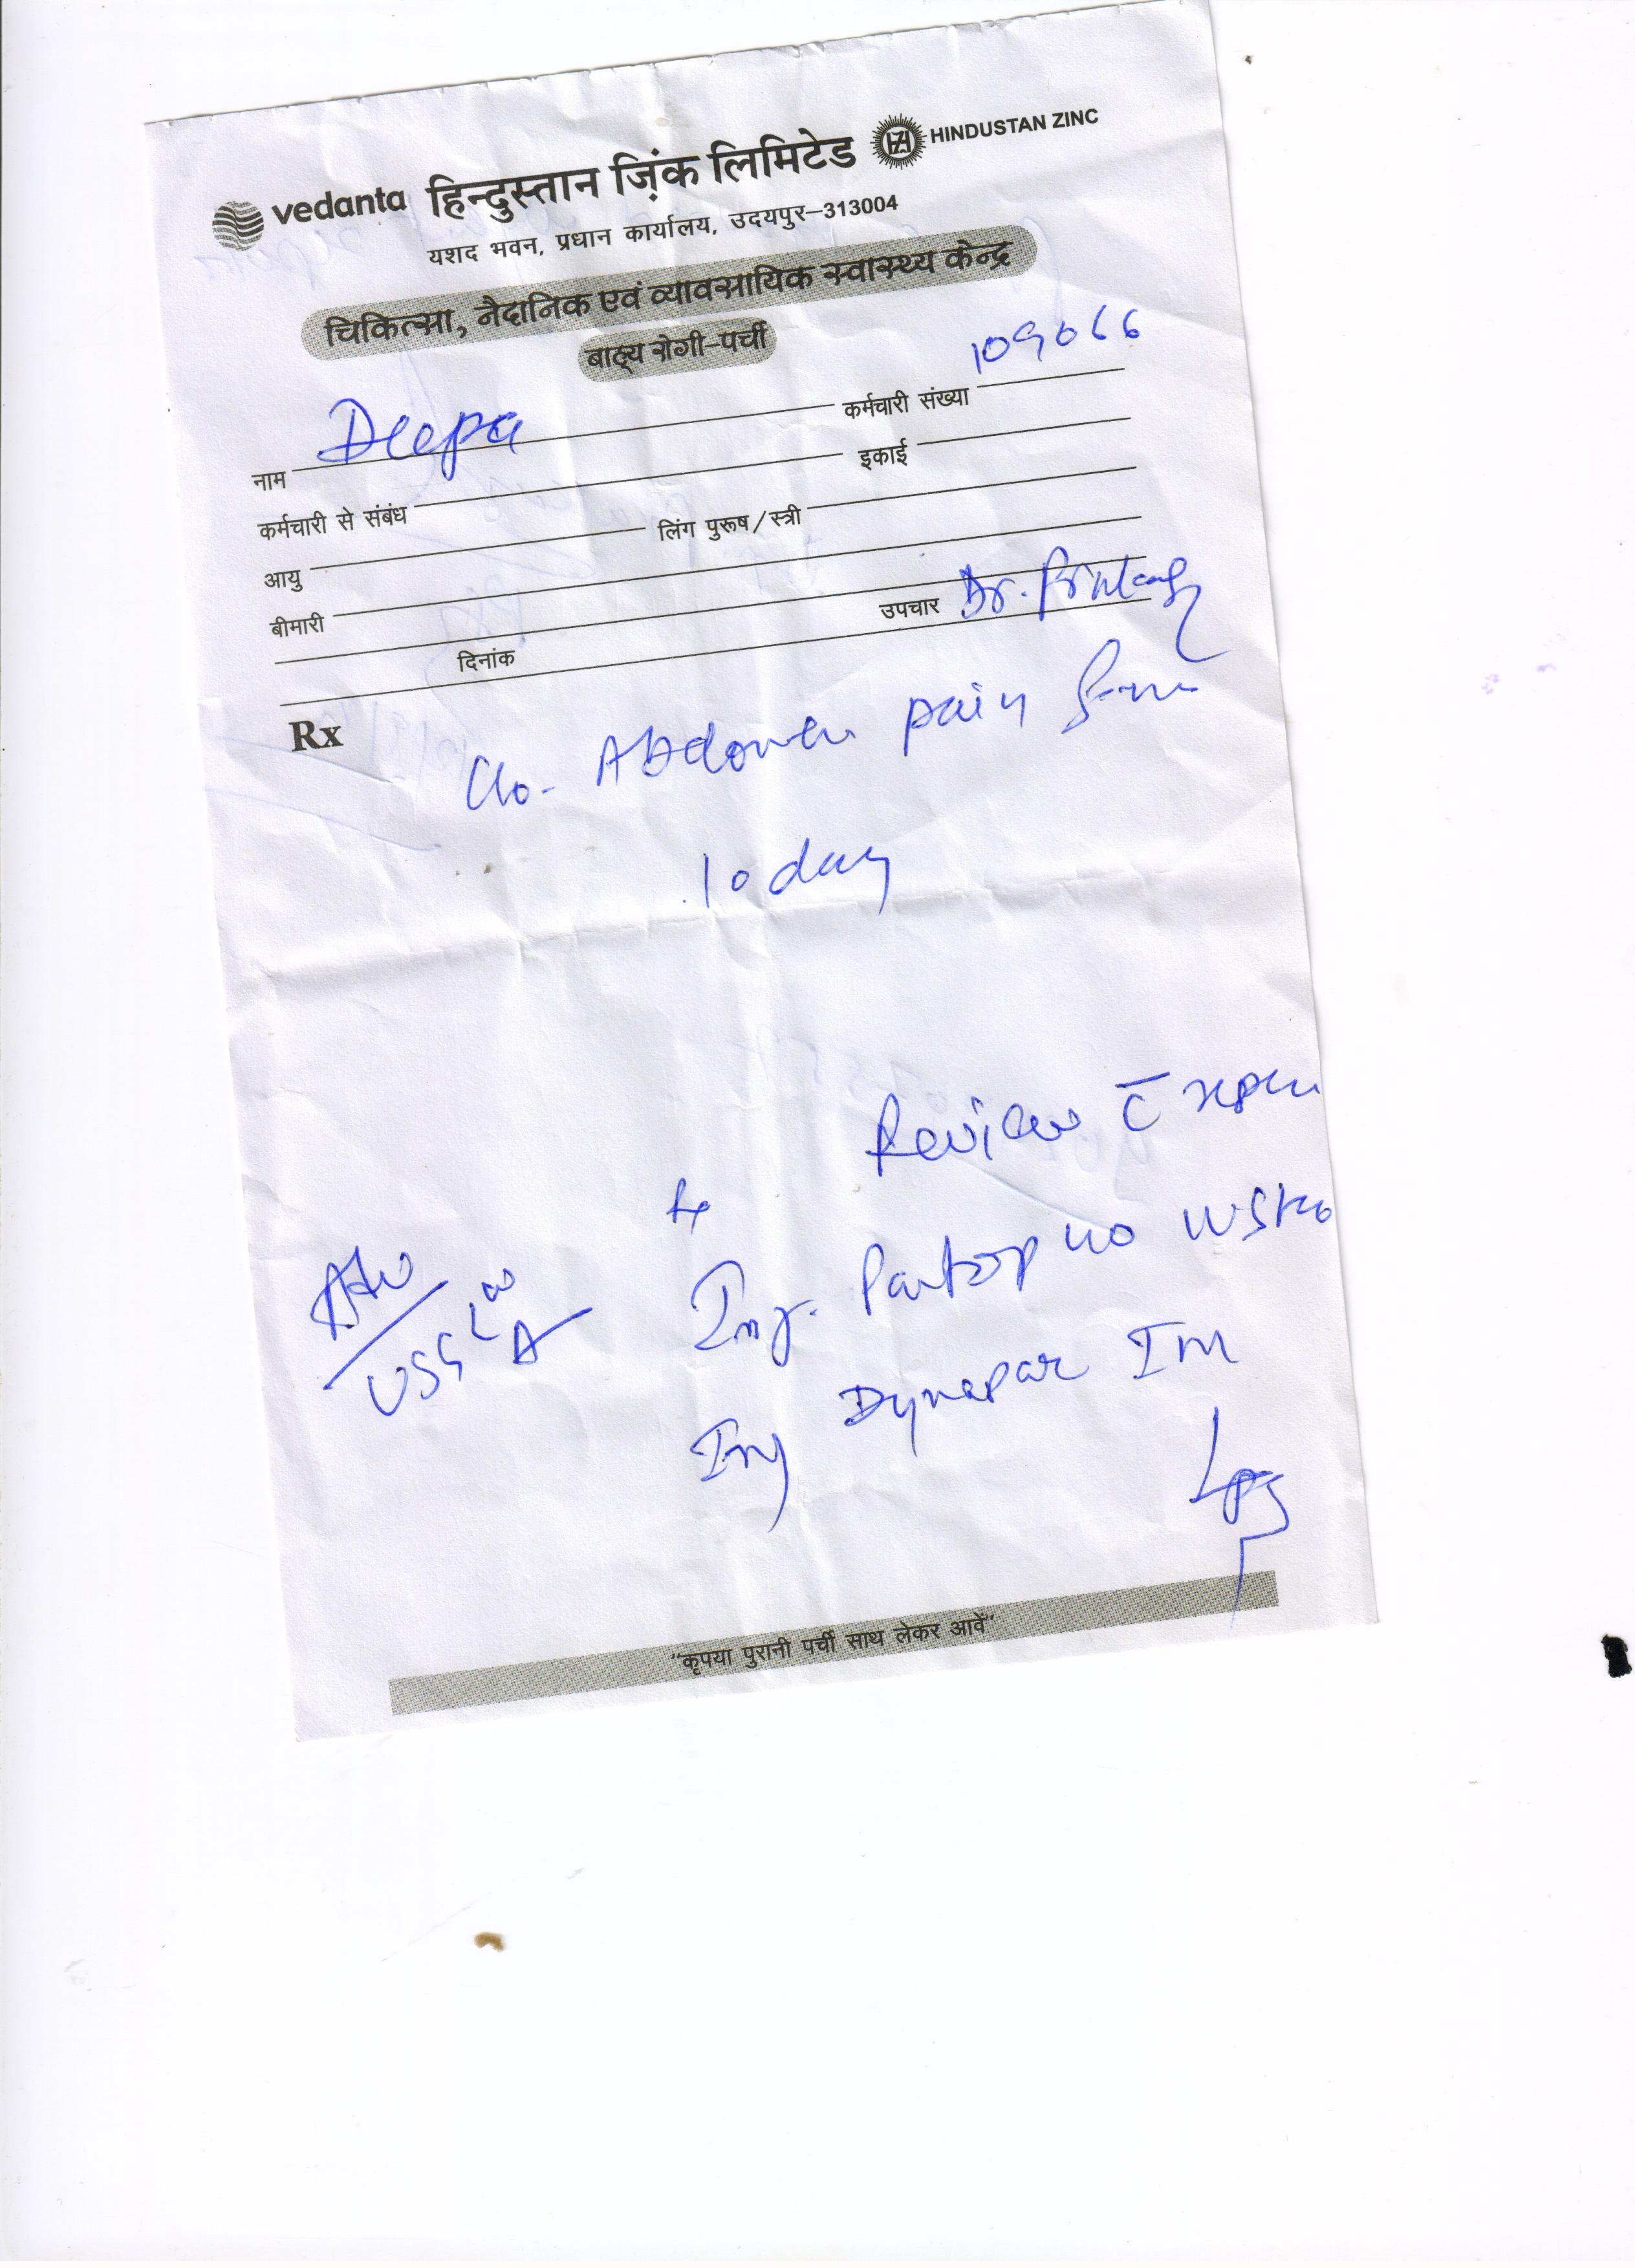 vedanta हिन्दुस्तान ज़िंक लिमिटेड HINDUSTAN ZINC
यशद भवन, प्रधान कार्यालय, उदयपुर-313004
चिकित्सा, नैदानिक एवं व्यावसायिक स्वास्थ्य केन्द्र
बाह्य रोगी-पर्ची
नाम Deepa कर्मचारी संख्या
कर्मचारी से संबंध इकाई
आयु लिंग पुरूष/स्त्री
बीमारी
दिनांक उपचार Dr.
Rx
C/o- Abdomen pain
10 day
Review c̄
Inj. Pantop 40
USG
Inj Dynapar Im
"कृपया पुरानी पर्ची साथ लेकर आवें"